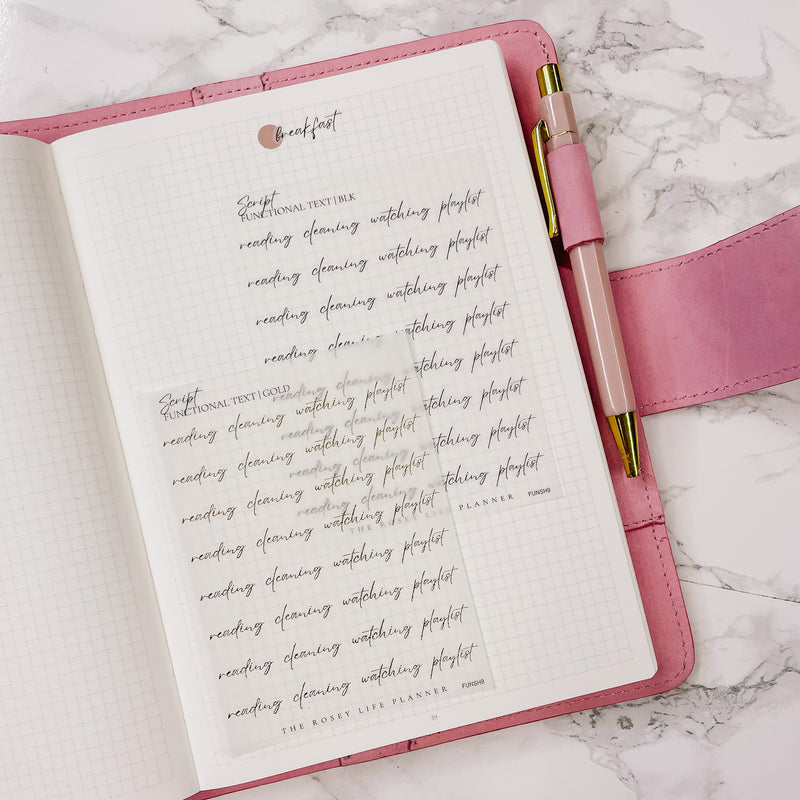 breakfast
Script
FUNCTIONAL TEXT | BLK
reading cleaning watching playlist
reading cleaning watching playlist
reading cleaning watching playlist
reading cleaning watching playlist
reading cleaning watching playlist
reading cleaning watching playlist
reading cleaning watching playlist
reading cleaning watching playlist
THE ROSEY LIFE PLANNER FUNSH9
Script
FUNCTIONAL TEXT | GOLD
reading cleaning watching playlist
reading cleaning watching playlist
reading cleaning watching playlist
reading cleaning watching playlist
reading cleaning watching playlist
reading cleaning watching playlist
reading cleaning watching playlist
reading cleaning watching playlist
THE ROSEY LIFE PLANNER FUNSH9